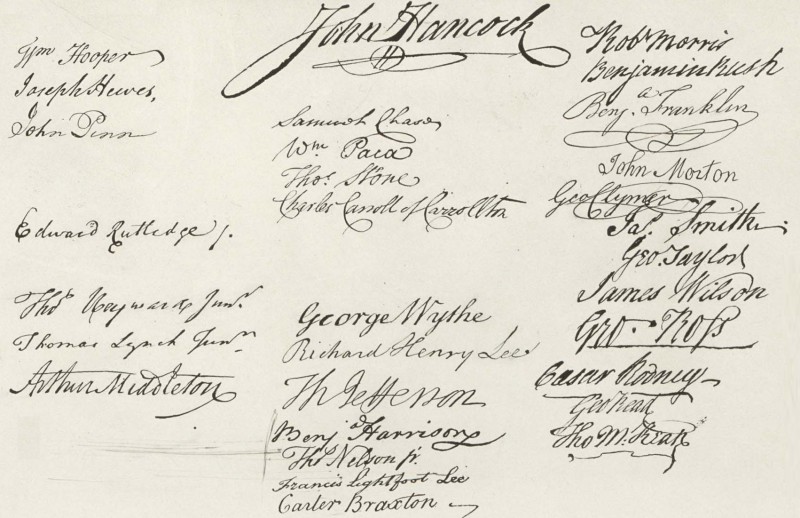 John Hancock
Wm Hooper
Joseph Hewes,
John Penn
Edward Rutledge /.
Thos Heyward Junr.
Thomas Lynch Junr.
Arthur Middleton
Samuel Chase
Wm. Paca
Thos. Stone
Charles Carroll of Carrollton
George Wythe
Richard Henry Lee
Th Jefferson
Benja Harrison
Thos Nelson jr.
Francis Lightfoot Lee
Carter Braxton
Robt Morris
Benjamin Rush
Benja. Franklin
John Morton
Geo Clymer
Jas. Smith.
Geo. Taylor
James Wilson
Geo. Ross
Caesar Rodney
Geo Read
Tho M:Kean